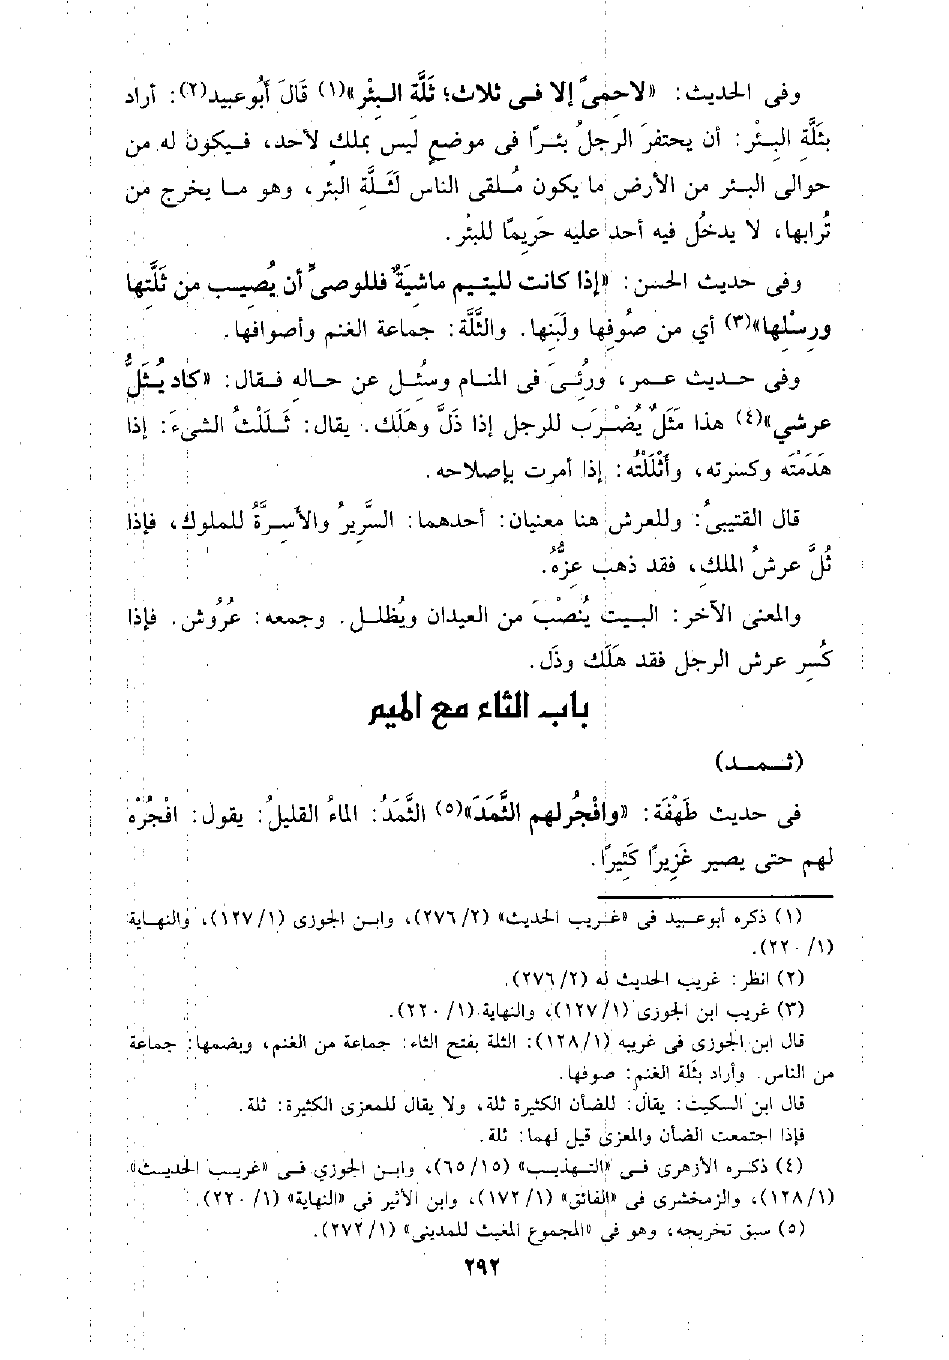 وفى الحديث: «لاحمىً إلا فى ثلاث؛ ثَلَّة البئْر»(١) قَالَ أَبُوعبيد(٢): أراد
بثَلَّةِ البِئْر: أن يحتفرَ الرجلُ بئرًا فى موضعٍ ليس بملك لأحد، فيكون له من
حوالى البئر من الأرض ما يكون مُلقى الناس لَثَلَّةِ البئر، وهو ما يخرج من
تُرابها، لا يدخلُ فيه أحد عليه حَرِيمًا للبئْر.
وفى حديث الحسن: «إذا كانت لليتيم ماشيَةٌ فللوصىِّ أن يُصيب من ثَلَّتها
ورِسْلِها»(٣) أي من صُوفِها ولَبَنِها. والثَّلَّة: جماعة الغنم وأصوافها.
وفى حديث عمر، ورُئىَ فى المنام وسُئل عن حاله فقال: «كاد يُثَلُّ
عرشي»(٤) هذا مَثَلٌ يُضْرَب للرجل إذا ذَلَّ وهَلَك. يقال: ثَلَلْتُ الشىءَ: إذا
هَدَمْتَه وكسرته، وأَثْلَلْتُه: إذا أمرت بإصلاحه.
قال القتيبىُ: وللعرش هنا معنيان: أحدهما: السَّريرُ والأَسرَّةُ للملوك، فإذا
ثُلَّ عرشُ الملك، فقد ذهب عِزُّه.
والمعنى الآخر: البيت يُنصْبَ من العيدان ويُظلل. وجمعه: عُرُوش. فإذا
كُسر عرش الرجل فقد هَلَك وذَل.
باب الثاء مع الميم
(ثـمـد)
فى حديث طَهْفَة: «وافْجُرلهم الثَّمَدَ»(٥) الثَّمَدُ: الماءُ القليلُ: يقول: افْجُرْهُ
لهم حتى يصير غَزِيرًا كَثِيرًا.
(١) ذكره أبوعبيد فى «غريب الحديث» (٢/ ٢٧٦)، وابن الجوزى (١/ ١٢٧)، والنهاية
(١/ ٢٢٠).
(٢) انظر: غريب الحديث له (٢/ ٢٧٦).
(٣) غريب ابن الجوزى (١/ ١٢٧)، والنهاية (١/ ٢٢٠).
قال ابن الجوزى فى غريبه (١/ ١٢٨): الثلة بفتح الثاء: جماعة من الغنم، وبضمها: جماعة
من الناس. وأراد بثَلة الغنم: صوفها.
قال ابن السكيت: يقال: للضأن الكثيرة ثلة، ولا يقال للمعزى الكثيرة: ثلة.
فإذا اجتمعت الضأن والمعزى قيل لهما: ثلة.
(٤) ذكره الأزهرى فى «التهذيب» (١٥/ ٦٥)، وابن الجوزي فى «غريب الحديث»
(١/ ١٢٨)، والزمخشرى فى «الفائق» (١/ ١٧٢)، وابن الأثير فى «النهاية» (١/ ٢٢٠).
(٥) سبق تخريجه، وهو فى «المجموع المغيث للمدينى» (١/ ٢٧٢).
٢٩٢